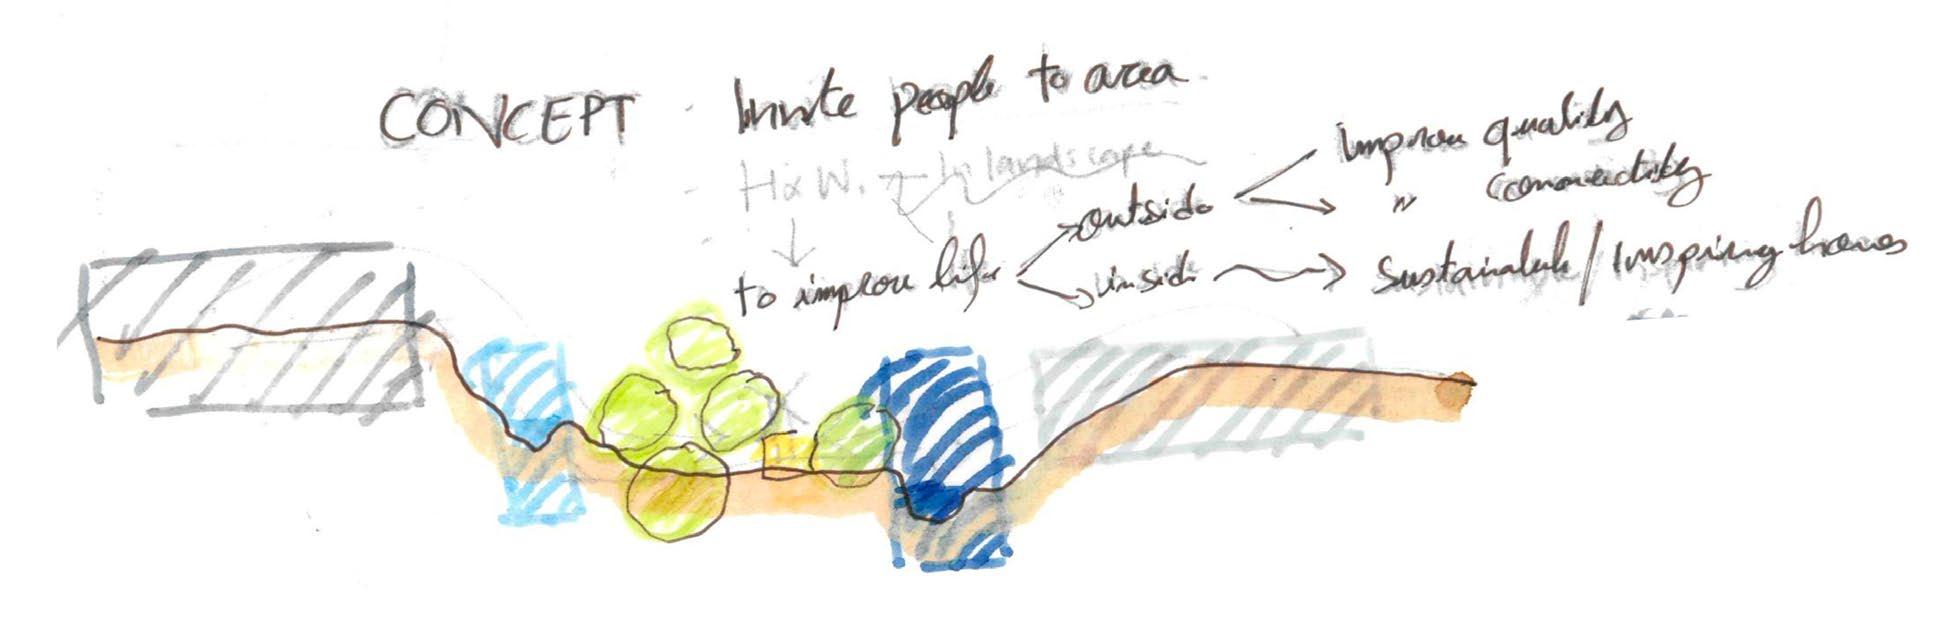 CONCEPT - Invite people to area
- H&W. → In landscape
to improve life
outside
Improve quality
" Connectivity
inside → Sustainable / Inspiring homes